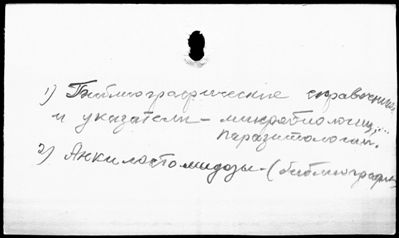 1) Библиографические справочники
и указатели - микробиологии,...
паразитологии.
2) Анкилостомидозы - (библиография